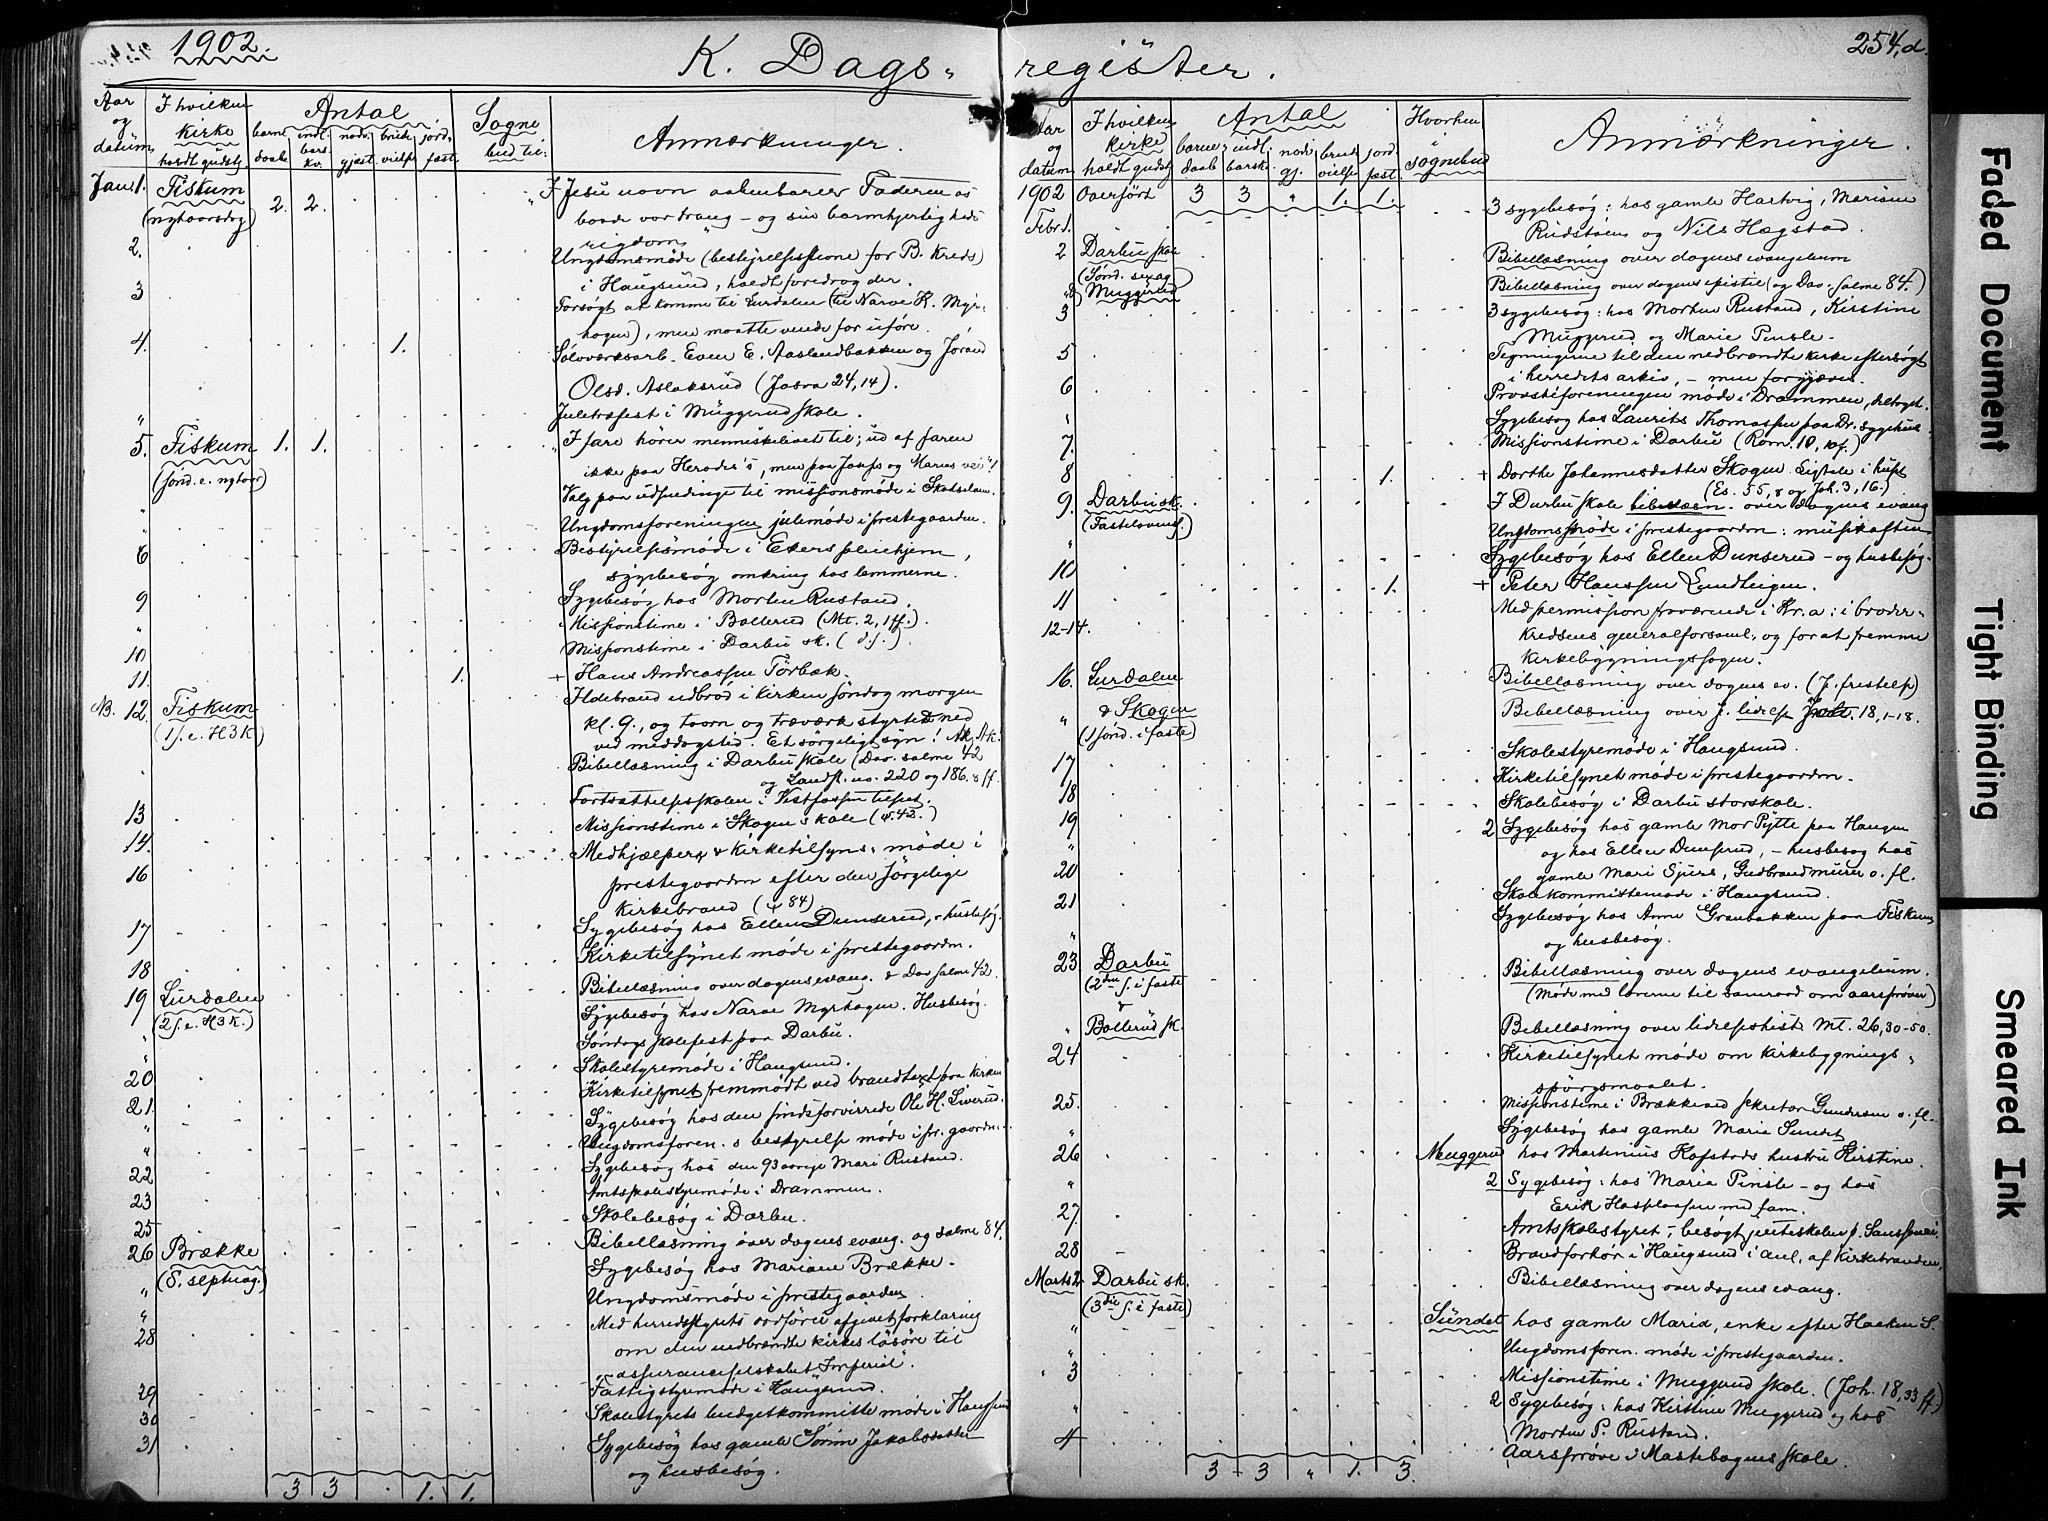 1902.
K. Dags-
Aar og datum
I hvilken kirke holdt gudstj.
Antal
barne daab
indl. bars. kv.
nadv. gjæst
brude vielse
jord. fæst.
Sogne bud til:
Anmærkninger.
Jan. 1. Fiskum (nytaarsdag) 2. 2. "I Jesu navn aabenbarer Faderen os
baade vor trang - og sin barmhjertigheds
rigdom"
2. Ungdomsmøde (bestyrelsesstevne for B. Kreds)
i Haugsund, holdt foredrag der.
3 Forsøgt at komme til Lurdalen (til Narve K. Myr-
hagen), men maatte vende for uføre.
4. 1. Sølværksarb. Even E. Aaslundbakken og Jørand
Olsd. Aslaksrud (Josva 24,14).
" Juletræfest i Muggerud skole.
5. Fiskum (sønd. e. nytaar) 1. 1. "I fare hører menneskelivet til; ud af faren
ikke paa Herodes's, men paa Josefs og Marias vei"!
" Valg paa udsendinge til missionsmøde i Skotselven.
" Ungdomsforeningen julemøde i prestegaarden.
6 Bestyrelsesmøde i Ekers pleiehjem,
sygebesøg omkring hos lemmerne.
9 Sygebesøg hos Morten Rustand.
" Missionstime i Bollerud (Mt. 2, 1 ff.).
10 Missionstime i Darbu sk. (d.s.).
11. 1. + Hans Andreassen Tørbæk.
NB. 12. Fiskum (1 s. e. H3K) Ildebrand udbrød i kirken søndag morgen
kl. 9., og taarn og træværk styrted ned
ved middagstid. Et sørgeligt syn!
Bibellæsning i Darbu skole (Dav. salme 42
og Landst. no. 220 og 186. 8 ff.
13 Fortsættelsesskolen i Vestfossen tilset.
14. Missionstime i Skogen skole (ψ. 42.)
16 Medhjælpere & Kirketilsyns- møde i
prestegaarden efter den sørgelige
kirkebrand (ψ 84).
17 Sygebesøg hos Ellen Dunserud, & husbesøg.
18 Kirketilsynet møde i prestegaarden.
19 Lurdalen (2 s. e. H3K.) Bibellæsning over dagens evang. & Dav salme 42.
" Sygebesøg hos Narve Myrhagen. Husbesøg.
" Søndagsskolefest paa Darbu.
20 Skolestyremøde i Haugsund.
21. Kirketilsynet fremmødt ved brandtaxt paa kirken
" Sygebesøg hos den sindsforvirrede Ole H. Liverud.
" Ungdomsforen.s bestyrelse møde i pr. gaarden.
22 Sygebesøg hos den 93 aarige Mari Rustand.
23 Amtsskolestyremøde i Drammen.
25 Skolebesøg i Darbu.
26 Brække (S. septuag.) Bibellæsning over dagens evang. og salme 84.
" Sygebesøg hos Mariane Brække.
" Ungdomsmøde i prestegaarden
28 Med herredstyrets ordfører afgivet forklaring
om den nedbrændte kirkes løsøre til
"assurancesselskabet Imperial".
29 Fattigstyremøde i Haugsund.
30 Skolestyrets budgetkommitte møde i Haugsund
31 Sygebesøg hos gamle Sørine Jakobsdatter
og husbesøg.
3 3 . 1. 1.
register.
254, d.
Aar og datum
I hvilken kirke holdt gudstj.
Antal
barne daab
indl. barsk.
nadv. gj.
brude vielse
jord. fæst.
Hvorhen i sognebud
Anmærkninger.
1902 Overført 3 3 " 1. 1.
Febr 1. 3 sygebesøg: hos gamle Hartvig, Mariane
Rudstøen og Nils Hægstad.
2 Darbu skole (Sønd. sexag) Bibellæsning over dagens evangelium
" Muggerud Bibellæsning over dagens epistel (og Dav. salme 84.)
3 3 sygebesøg: hos Morten Rustand, Kirstine
Muggerud og Marie Pinsle.
5 Tegningerne til den nedbrændte kirke eftersøgt
i herredets arkiv, - men forgjæves.
6 Provstiforeningen møde i Drammen, deltaget.
" Sygebesøg hos Laurits Thomassen paa Dr. sygehus
7. Missionstime i Darbu (Rom. 10, 10 f.)
8 1. + Dorthe Johannesdatter Skogen. Ligtale i huset
(Es. 55, 8 og Joh. 3, 16.)
9. Darbu sk. (Fastelavnss.) I Darbu skole bibellæsn. over dagens evang
" Ungdomsmøde i prestegaarden: musikaften
10 Sygebesøg hos Ellen Dunserud - og husbesøg.
11 1. + Peter Hanssen Lundteigen.
12-14. Med permission fraværende i Kr.a: i broder-
kredsens generalforsaml. og for at fremme
kirkebygningssagen.
16. Lurdalen Bibellæsning over dagens ev. (J. fristelse)
" & Skogen (1 sønd. i faste) Bibellæsning over J. lidelse Joh. 18, 1-18.
17 Skolestyremøde i Haugsund.
18 Kirketilsynet møde i prestegaarden.
19 Skolebesøg i Darbu storskole.
" 2 Sygebesøg hos gamle Mor Pytte paa Haugen
og hos Ellen Dunserud, - husbesøg hos
gamle Mari Sjurs, Gudbrand murer o. fl.
20 Skolekommittemøde i Haugsund.
21 Sygebesøg hos Anne Graubakken paa Fiskum
og husbesøg.
23 Darbu (2den s. i faste Bibellæsning over dagens evangelium.
(Møde med lærerne til samraad om aarsprøver)
" & Bollerud sk. Bibellæsning over lidelseshist. Mt. 26, 30-50.
24 Kirketilsynet møde om kirkebygnings-
spørgsmaalet.
25. Missionstime i Brække ved sekretær Gundersen o. fl.
" Sygebesøg hos gamle Maria Sundet
26 Muggerud hos Martinius Hofstads hustru Kirstine.
" 2 Sygebesøg: hos Maria Pinsle - og hos
Erik Haslaasen med fam.
27. Amtsskolestyret,- besøgt penteskolen s. Sanssouci.
28 Brandforhør i Haugsund i anl. af kirkebranden.
Marts 2 Darbu sk. (3die s. i faste) Bibellæsning over dagens evang.
" Sundet hos gamle Maria, enke efter Haaken S.
" Ungdomsforen. møde i prestegaarden.
" 3 Missionstime i Muggerud skole. (Joh. 18, 33 ff.)
" 2 Sygebesøg: hos Kirstine Muggerud og hos
Morten P. Rustand.
4 Aarsprøve i Mastebogens skole.
3 3 " 1. 3.
Faded Document
Tight Binding
Smeared Ink